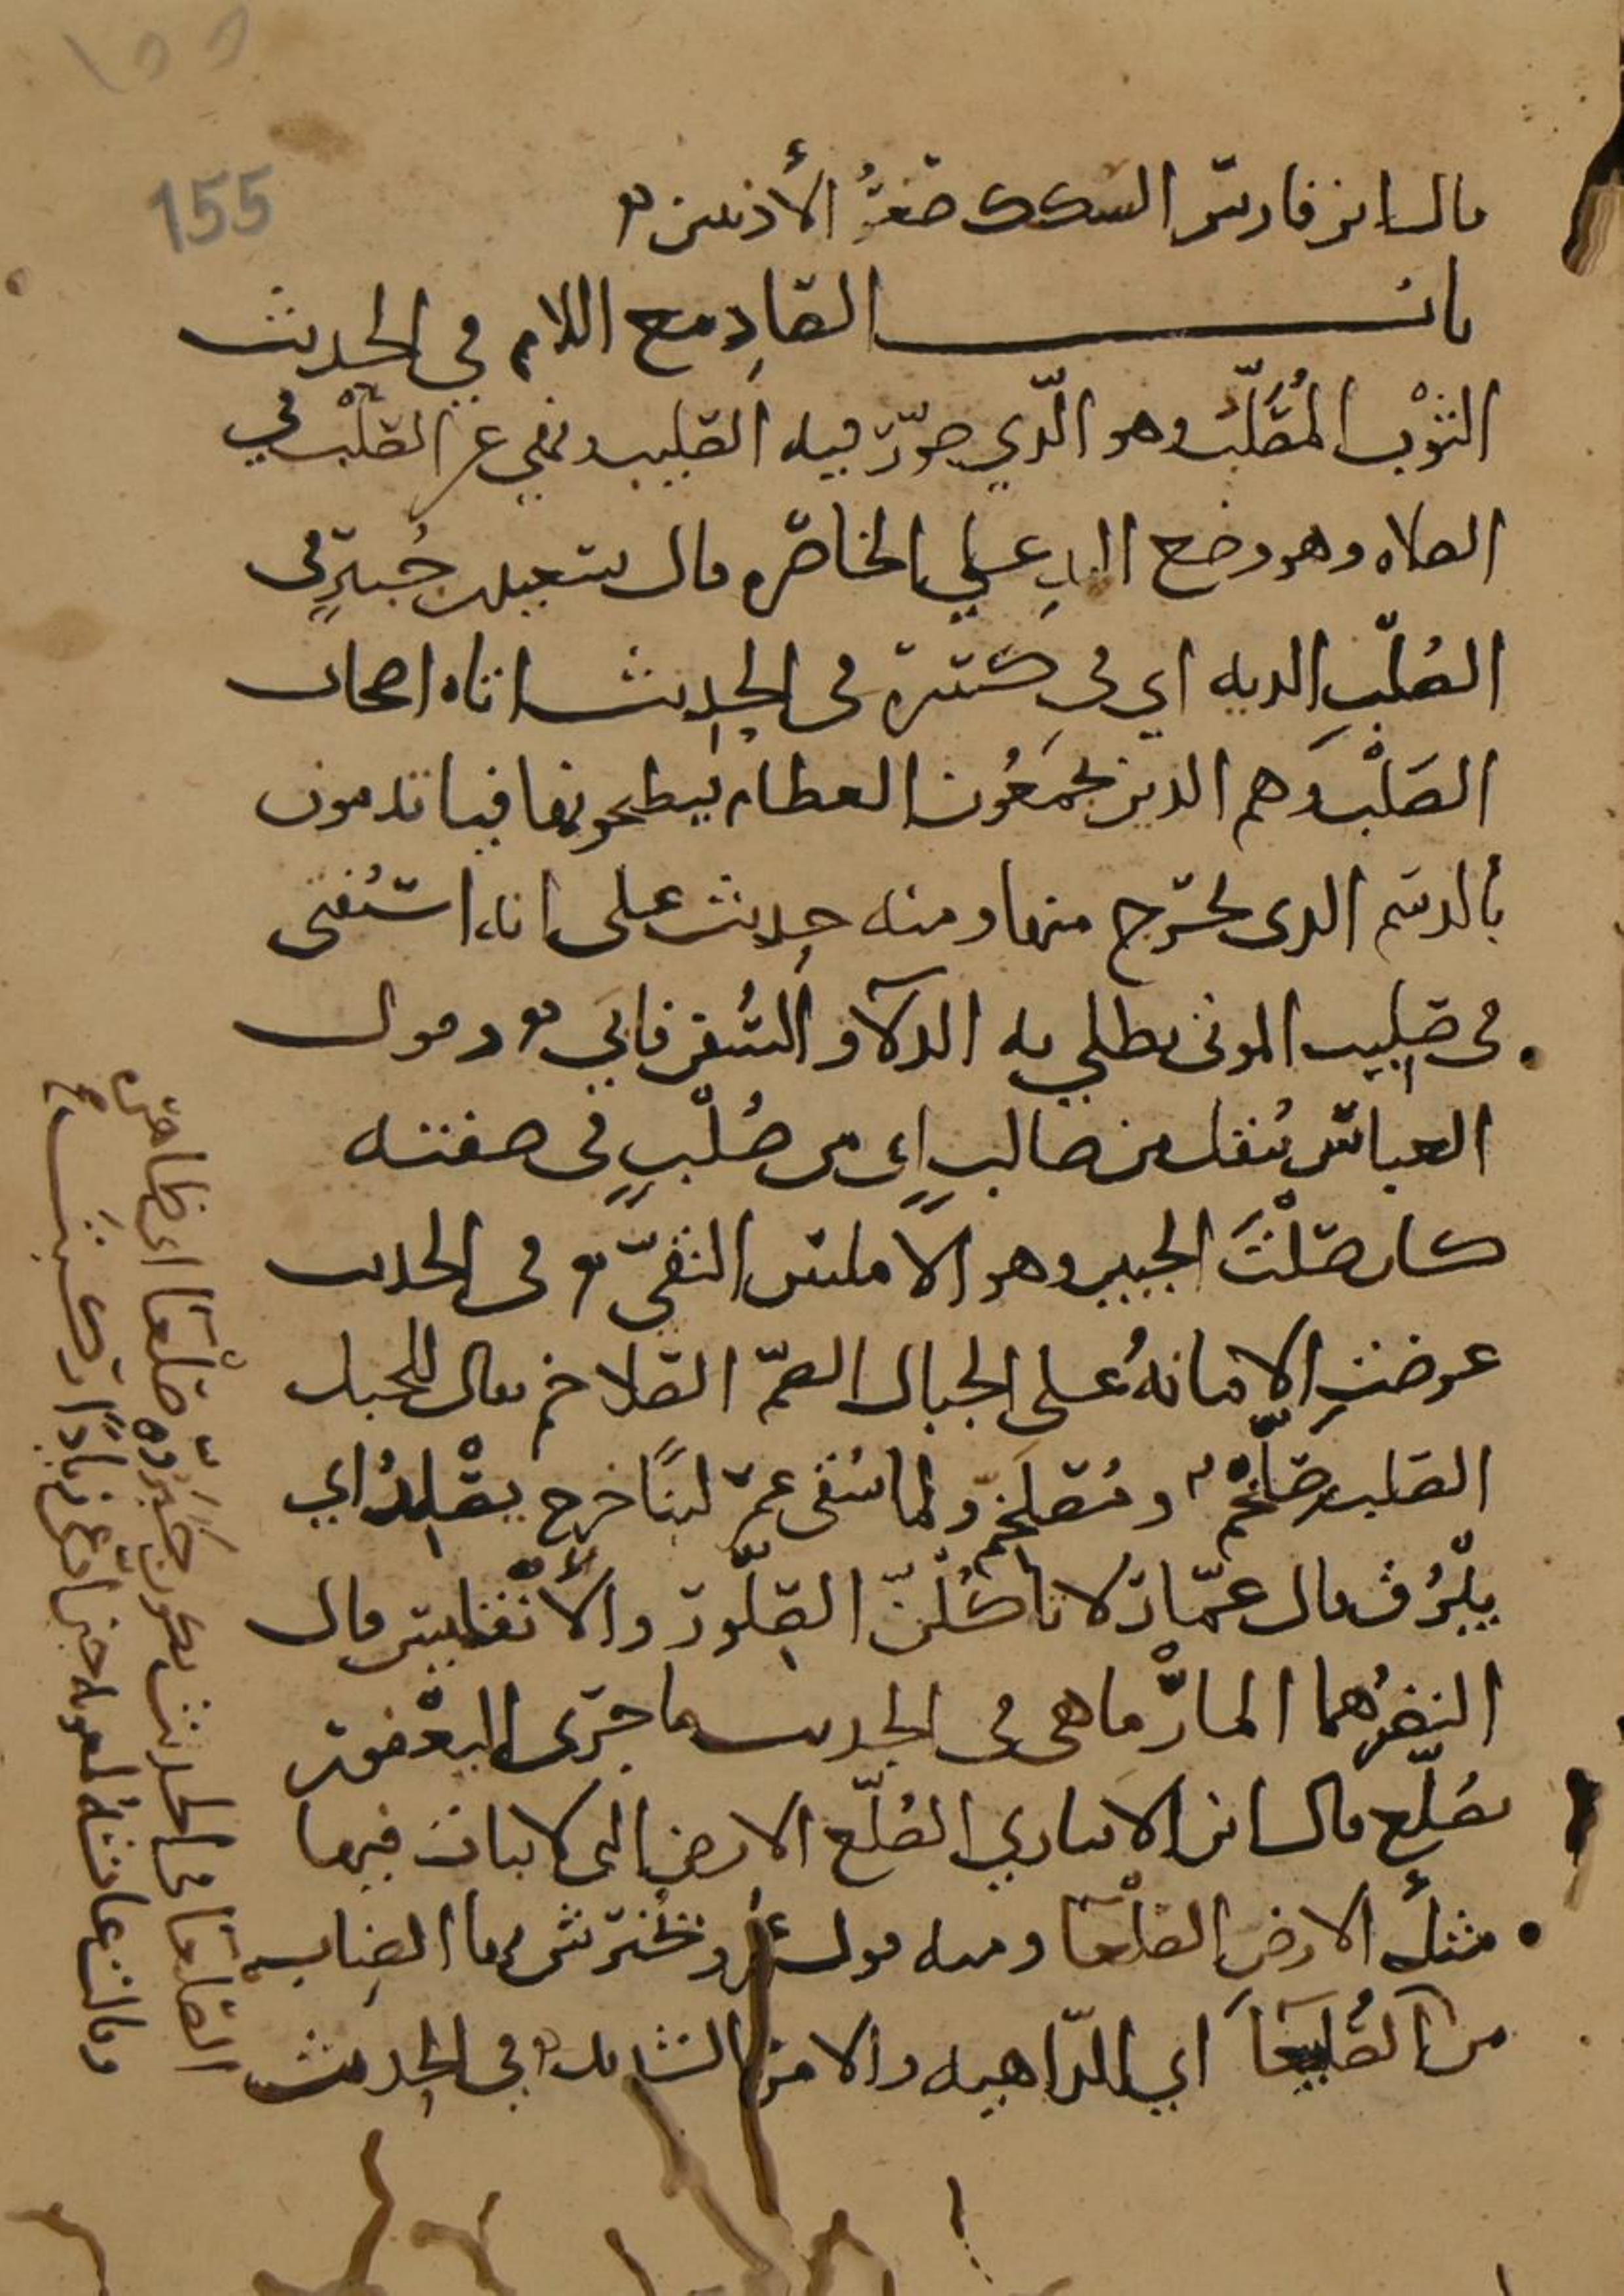 ١٥٥
155
قال ابن فارس السكك صغر الأذنين
باب الصاد مع اللام في الحديث
الثَّوْب المُصَلَّب وهو الّذي صوّر فيه الصليب ونهي عن الصلْب في
الصلاه وهو وضع اليد علي الخاصره قال سعيد بن جُبيرٍ في
الصُلْبِ الديه اي في كسره في الحديث اتاه اصحاب
الصَلْب وهم الذين يجمَعُون العظام فيطبخونها فياتدمون
بالدسم الذى يخرج منها ومنه حديث على انه استُفتى
فى صليب الموتى يطلي به الدلآ والسُّفن فابَى وقول
العباس تُنقل من صالبٍ اى من صُلْبٍ فى صفته
كان صَلْتَ الجبين وهو الاملس النقىّ وفى الحديث
عرضتِ الامانهُ على الجبال الصمّ الصلاخم يقال للجبل
الصلب صلّخم ومُصلخم ولما سُقى عمر لبنًا خرج يصْلِدُ اي
يبْرُق قال عمّار لا تاكلنّ الصلّور والأنْقليس قال
النضرُ هما المارْماهى فى الحديث ما جرى اليعْفور
بصُلّع قال ابن الانباري الصُلّع الارض التى لا نبات فيها
مثلُ الارضِ الصلْعآ ومنه قول عمر وتحْترش بها الضباب
من الصُلَيعآ اي الدّاهيه والامر الشديد وفي الحديث
الصلعآ فى الحديث يكون جَبَرُوّه صَلْعآ اى ظاهره
وقالت عايشه لمعويه حين ادّعى زيادًا ركبتَ